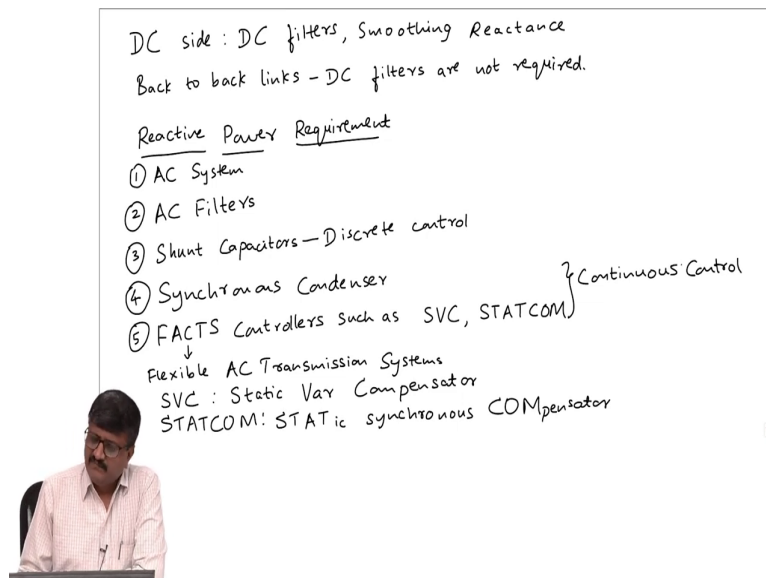 DC side : DC filters, Smoothing Reactance
Back to back links – DC filters are not required.
Reactive Power Requirement
① AC System
② AC Filters
③ Shunt Capacitors – Discrete control
④ Synchronous Condenser
⑤ FACTS Controllers such as SVC, STATCOM } Continuous Control
↓
Flexible AC Transmission Systems
SVC : Static Var Compensator
STATCOM : STATic synchronous COMpensator